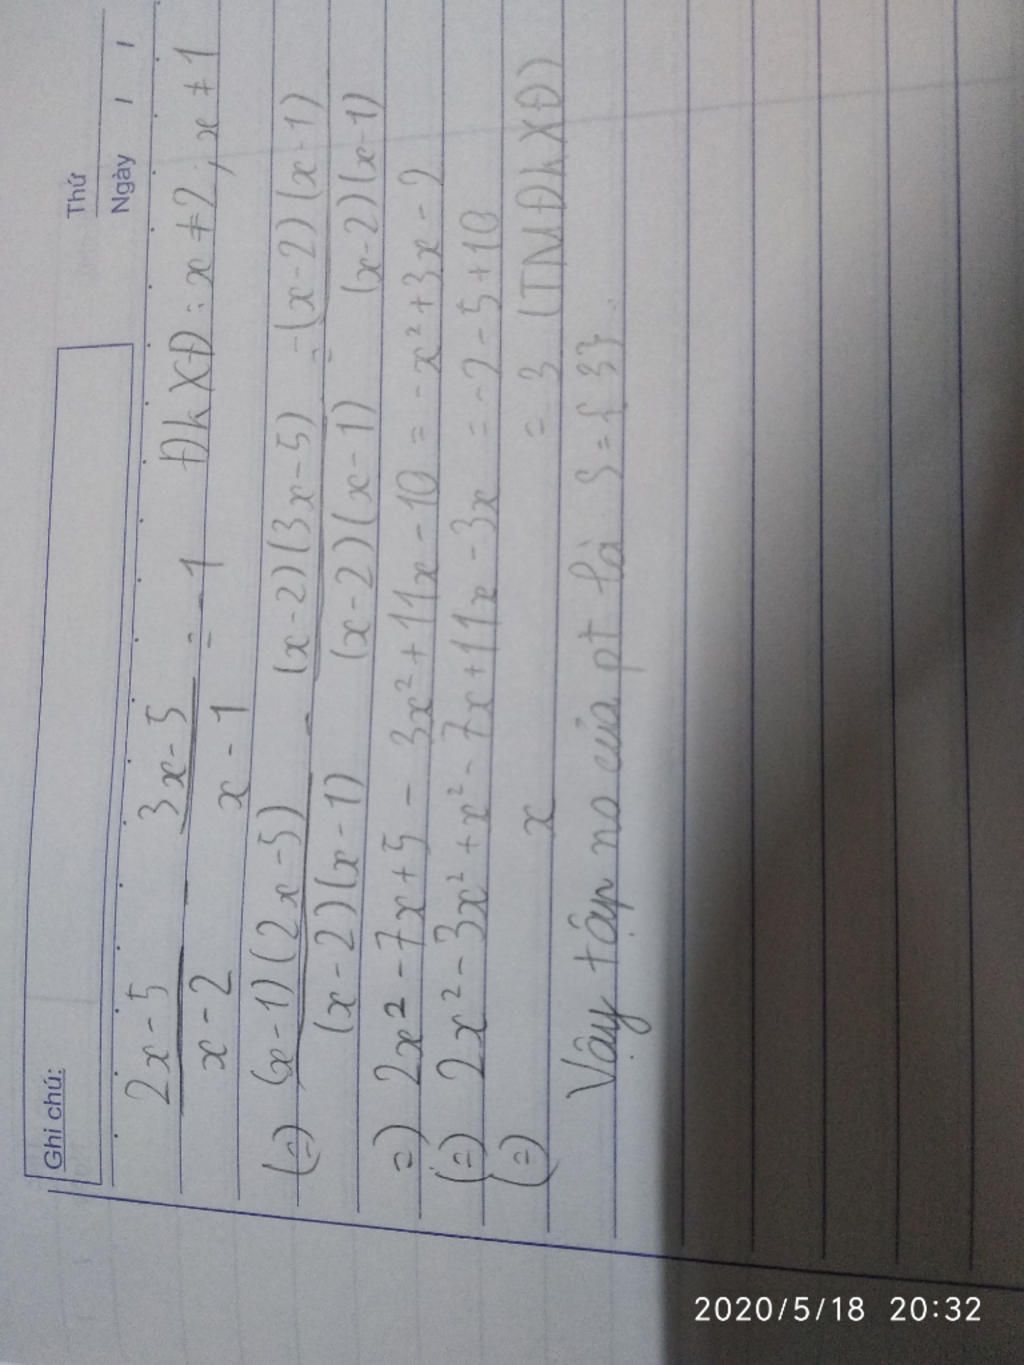 Ghi chú:
Thứ
Ngày / /
2x-5/x-2 - 3x-5/x-1 = -1 ĐkXĐ: x≠2; x≠1
(=) (x-1)(2x-5)/(x-2)(x-1) - (x-2)(3x-5)/(x-2)(x-1) = -(x-2)(x-1)/(x-2)(x-1)
=) 2x²-7x+5 - 3x²+11x-10 = -x²+3x-2
(=) 2x²-3x²+x²-7x+11x-3x = -2-5+10
(=) x = 3 (TMĐkXĐ)
Vậy tập no của pt là S={3}.
2020/5/18 20:32